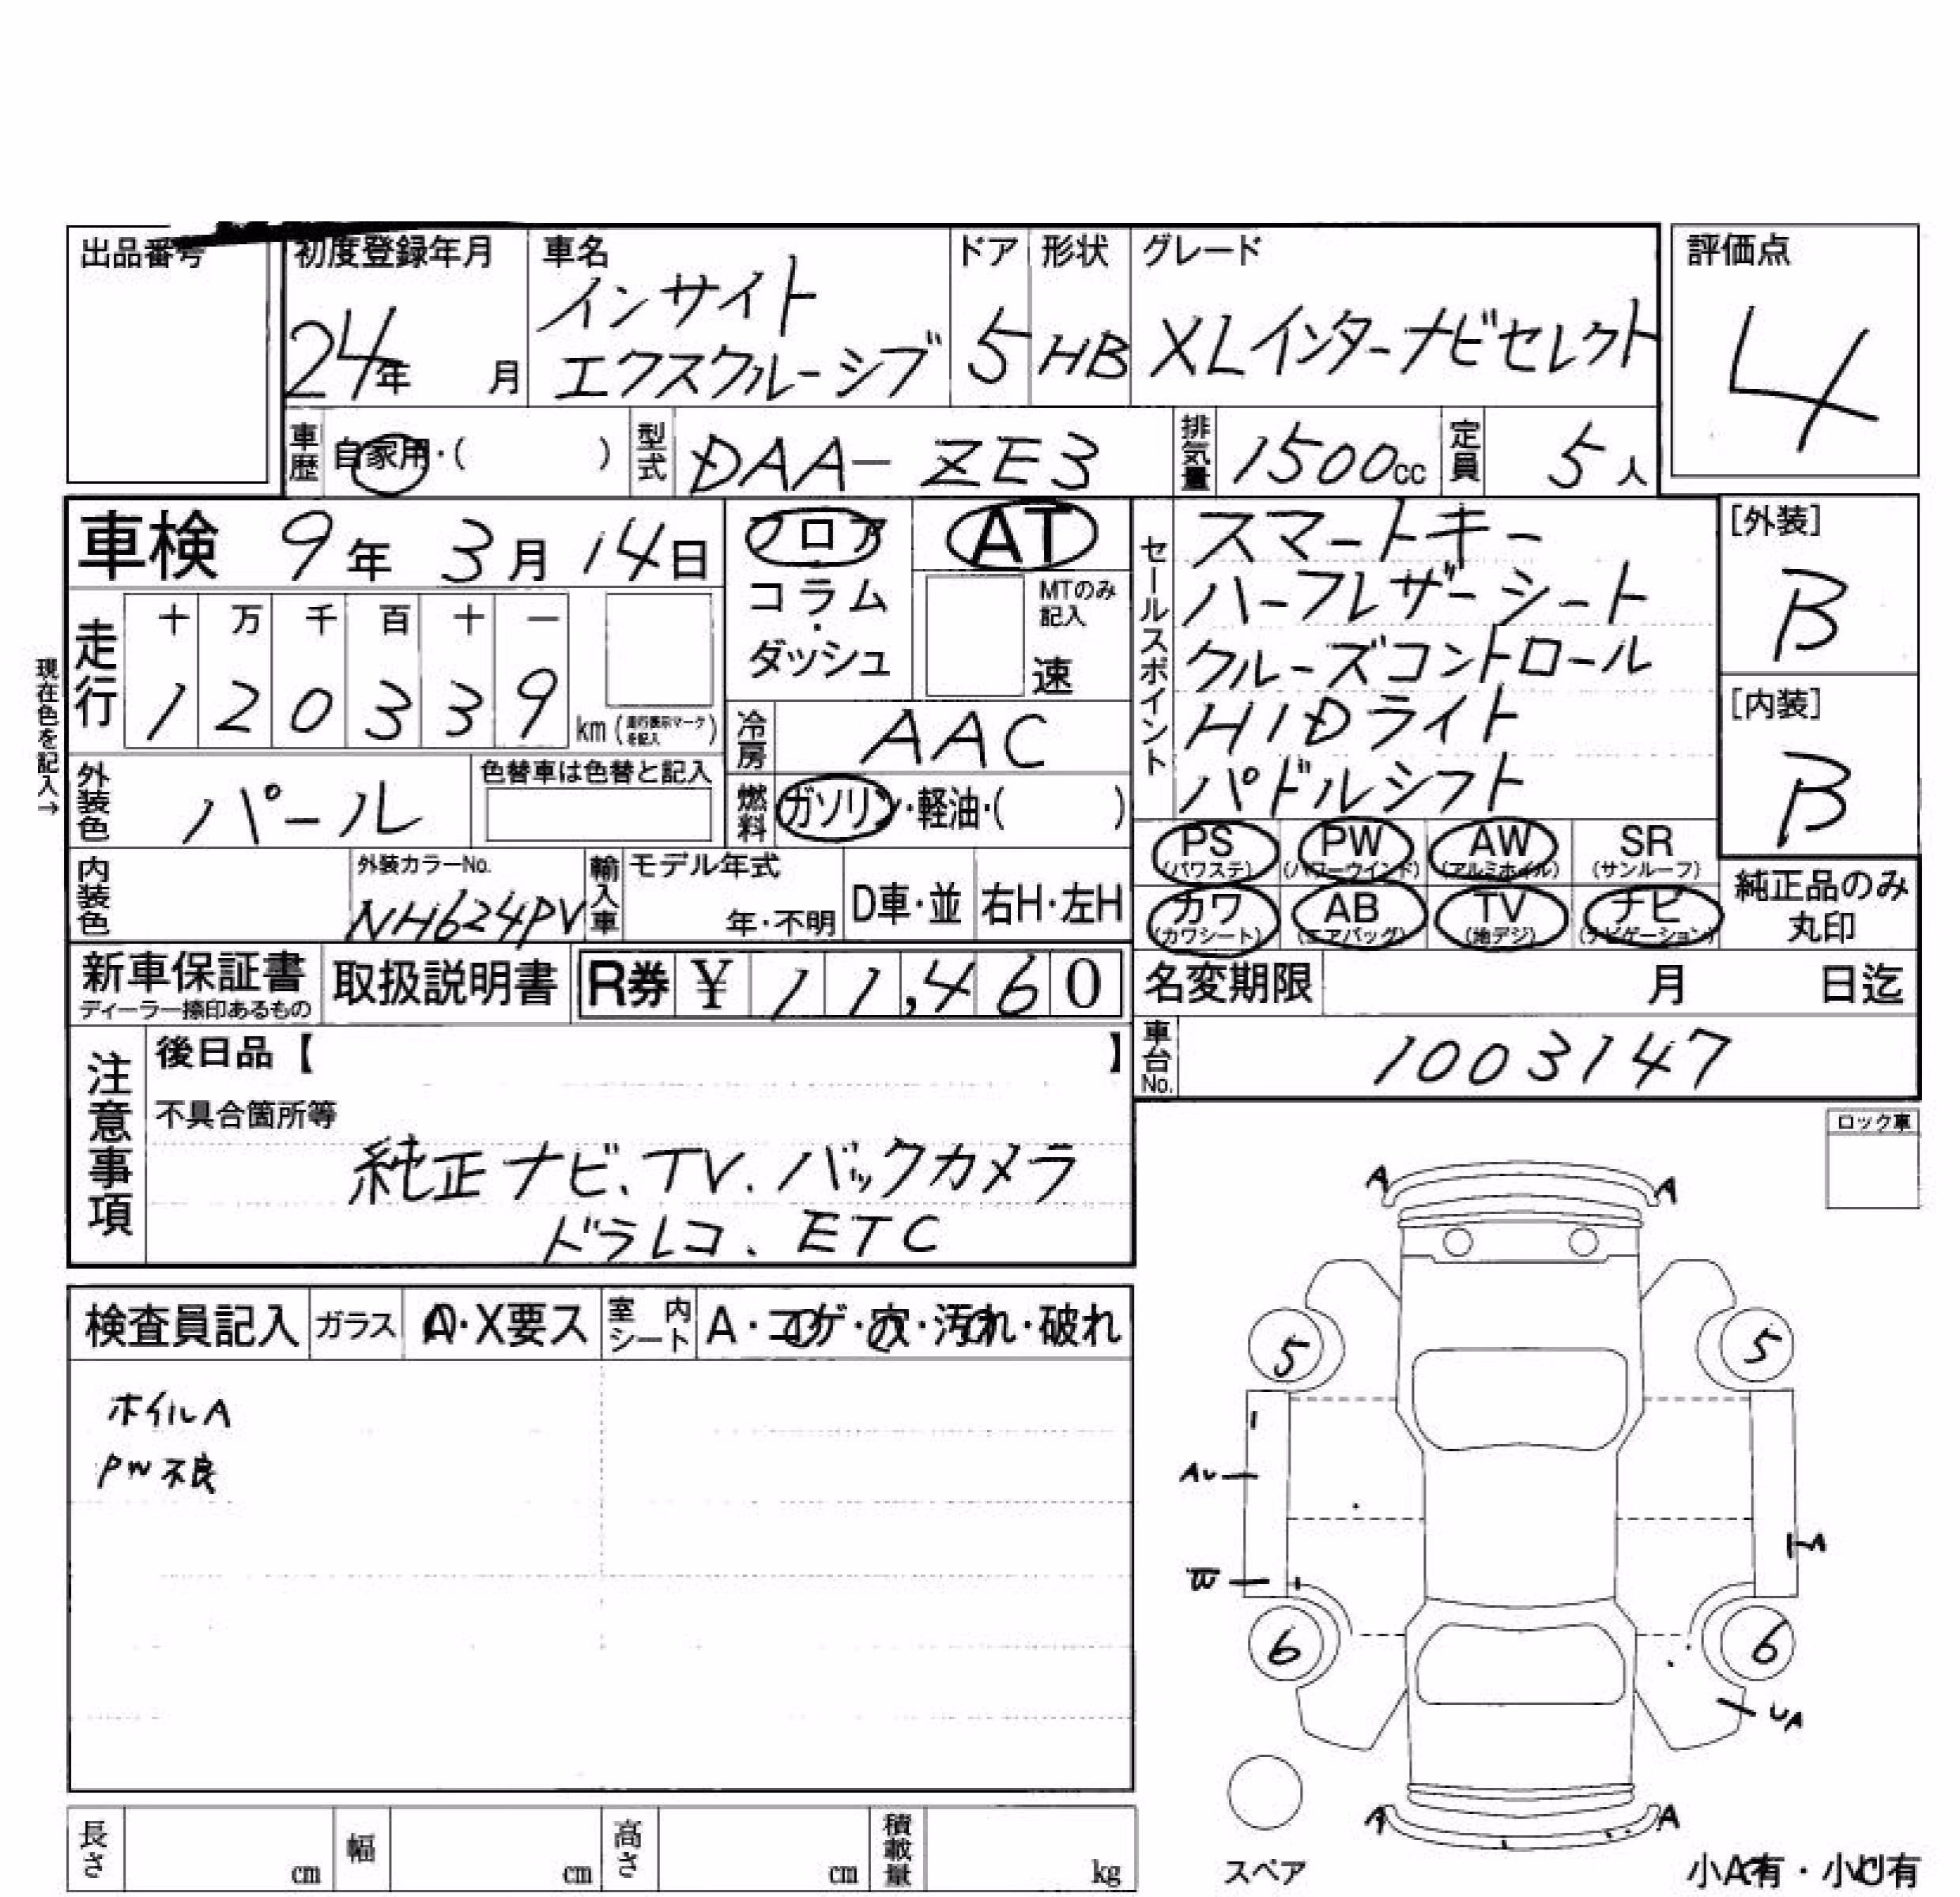 出品番号
初度登録年月 24年 月
車名 インサイト
エクスクルーシブ
ドア 5
形状 HB
グレード XLインターナビセレクト
評価点 4
車歴 自家用・( )
型式 DAA-ZE3
排気量 1500cc
定員 5人
車検 9年 3月 14日
フロア
コラム
・
ダッシュ
AT
MTのみ
記入
速
走行
十 万 千 百 十 一
1 2 0 3 3 9 km (走行表示マークを記入)
現在色を記入→
冷房 AAC
燃料 ガソリン・軽油・( )
外装色 パール
色替車は色替と記入
セールスポイント
スマートキー
ハーフレザーシート
クルーズコントロール
HIDライト
パドルシフト
[外装]
B
[内装]
B
PS (パワステ) PW (パワーウインド) AW (アルミホイル) SR (サンルーフ)
カワ (カワシート) AB (エアバッグ) TV (地デジ) ナビ (ナビゲーション)
純正品のみ
丸印
内装色
外装カラーNo. NH624PV
輸入車
モデル年式
年・不明
D車・並
右H・左H
新車保証書
ディーラー捺印あるもの
取扱説明書
R券 ¥ 11,460
名変期限 月 日迄
車台No. 1003147
注意事項
後日品【 】
不具合箇所等
純正ナビ、TV、バックカメラ
ドラレコ、ETC
ロック車
検査員記入 ガラス A・X要ス 室内シート A・コゲ・穴・汚れ・破れ
ホイルA
PW不良
A A
5 5
AU
A
W
6 6
UA
A A
スペア
小A有・小U有
長さ cm 幅 cm 高さ cm 積載量 kg